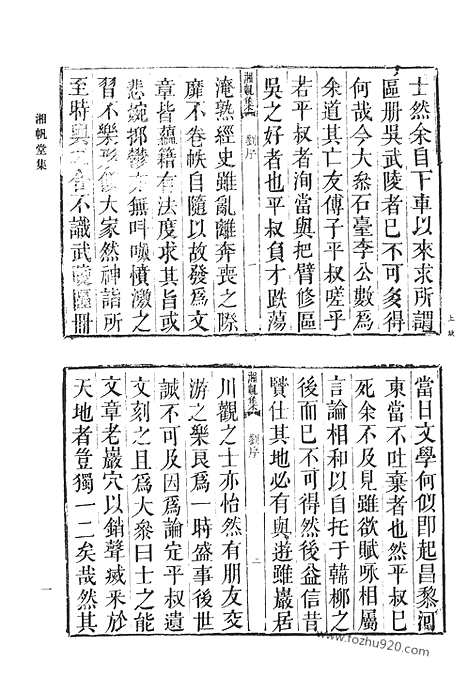 士然余自下車以來求所謂
區册吳武陵者已不可多得
何哉今大叅石臺李公數爲
余道其亡友傅子平叔嗟乎
若平叔者洵當與把臂修區
吳之好者也平叔負才跌蕩
湘帆堂集 劉序 一
淹熟經史雖亂離奔喪之際
靡不卷帙自隨以故發爲文
章皆蘊籍有法度求其旨或
悲婉掷鬱亦無呌嘆憤激之
習不樂形似大家然神詣所
至時與 不識武陵區册
湘帆堂集
上缺
當日文學何似即起昌黎河
東當不吐棄者也然平叔已
死余不及見雖欲賦咏相屬
言論相和以自托于韓柳之
後而已不可得然後益信昔
賢仕其地必有與遊雖巖居
湘帆堂集 劉序 二
川觀之士亦怡然有朋友交
游之樂良爲一時盛事後世
誠不可及因爲論定平叔遺
文刻之且爲大叅曰士之能
文章老巖穴以銷聲滅釆於
天地者豈獨一二矣哉然其
一
www.fozhu920.com